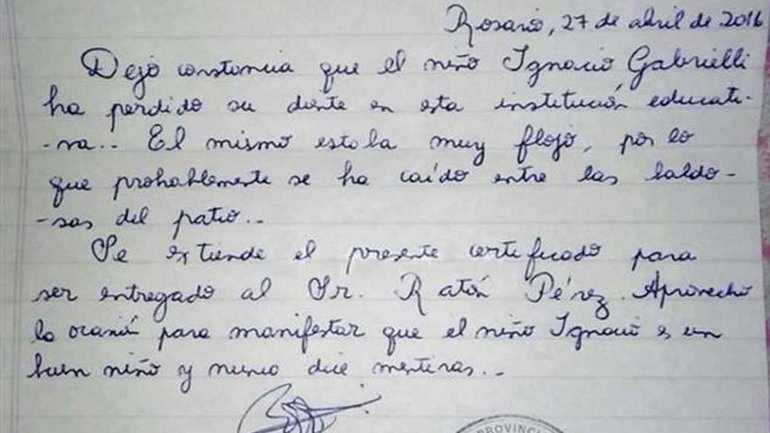 Rosario, 27 de abril de 2016
Dejo constancia que el niño Ignacio Gabrielli
ha perdido su diente en esta institución educati-
-va.. El mismo estaba muy flojo, por lo
que probablemente se ha caído entre las baldo-
-sas del patio..
Se extiende el presente certificado para
ser entregado al Sr. Ratón Pérez. Aprovecho
la ocasión para manifestar que el niño Ignacio es un
buen niño y nunca dice mentiras..
PROVINCI